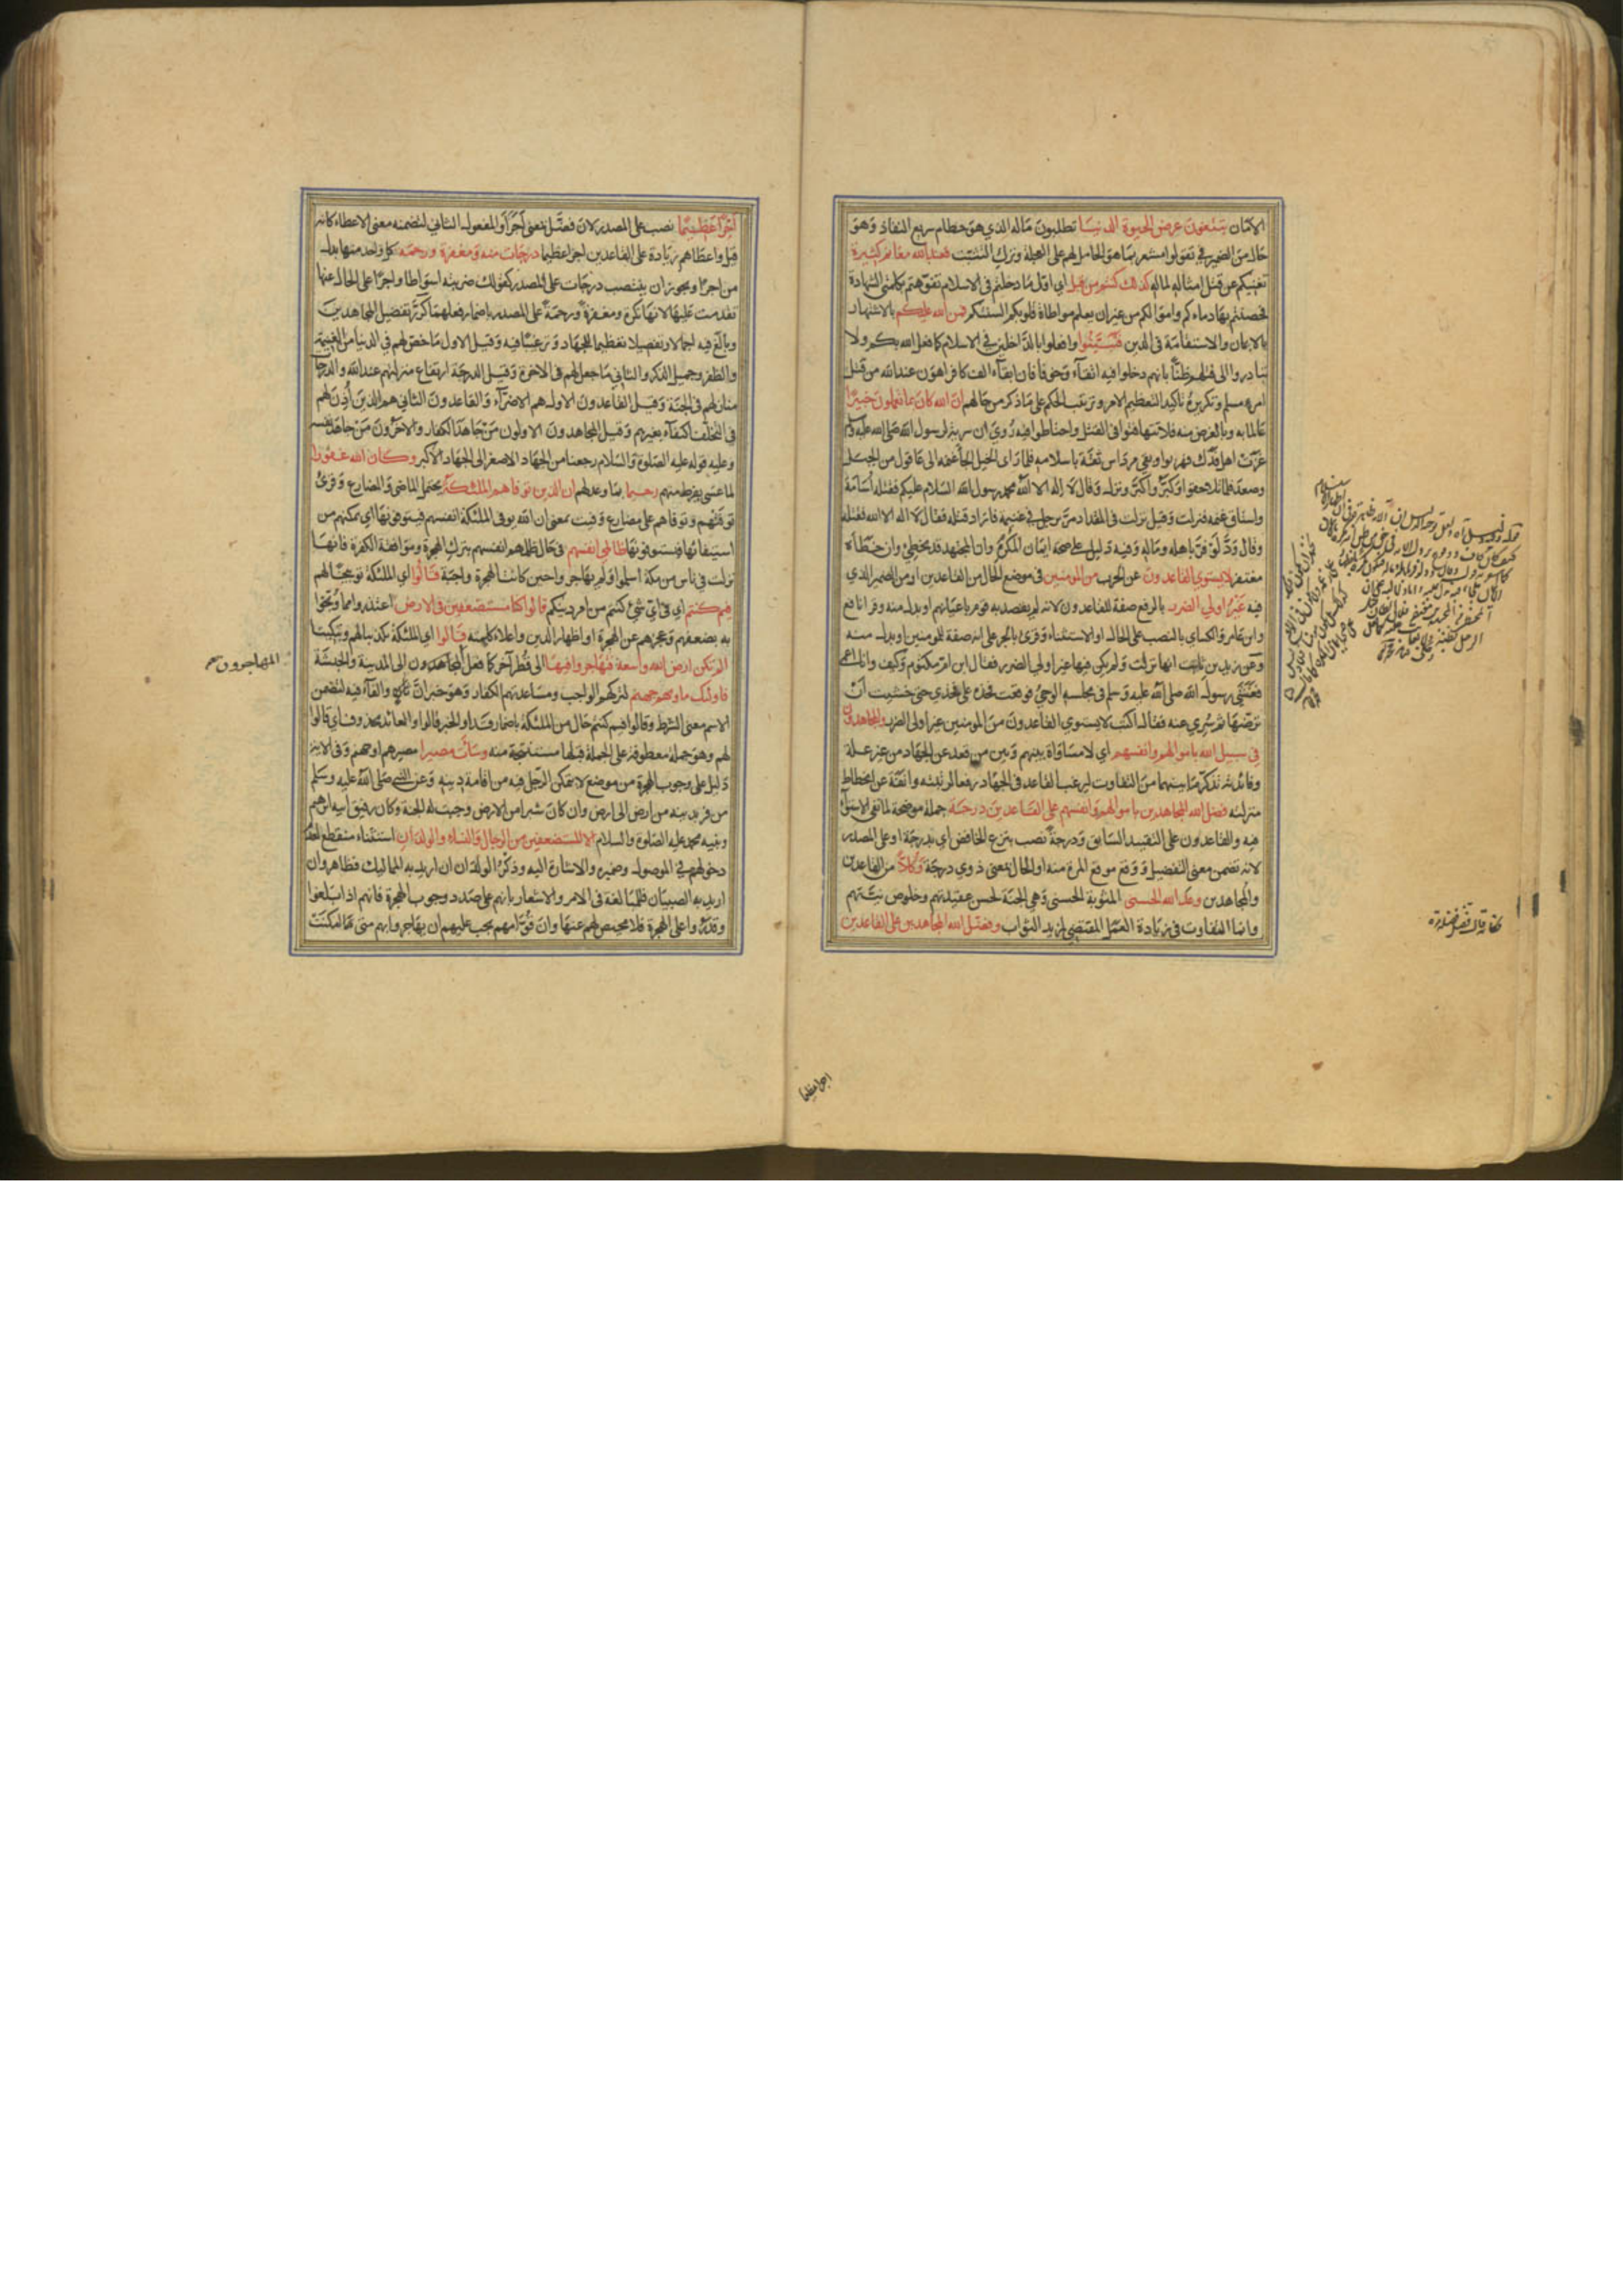 الامان تبتغون عرض الحيوة الدنيا تطلبون ماله الذي هو حطام سريع النفاد وهو
حال من الضمير في تقولوا مشعر بما هو الحامل لهم على العجلة وترك التثبت فعند الله مغانم كثيرة
تغنيكم عن قتل امثاله لماله كذلك كنتم من قبل اي اول ما دخلتم في الاسلام تفوهتم بكلمتي الشهادة
فحصنتم بها دماءكم واموالكم من غير ان يعلم مواطاة قلوبكم السنتكم فمن الله عليكم بالاشتهار
بالايمان والاستقامة في الدين فتبينوا وافعلوا بالداخلين في الاسلام كما فعل الله بكم ولا
تبادروا الى قتلهم ظنا بانهم دخلوا فيه اتقاء وخوفا فان ابقاء الف كافر اهون عند الله من قتل
امرء مسلم وتكريره تاكيد لتعظيم الامر وترتيب الحكم على ما ذكر من حالهم ان الله كان بما تعملون خبيرا
عالما به وبالغرض منه فلا تتهافتوا في القتل واحتاطوا فيه روي ان سرية لرسول الله صلى الله عليه وسلم
غزت اهل فدك فهربوا وبقي مرداس ثقة باسلامه فلما راى الخيل الجأ غنمه الى عاقول من الجبل
وصعد فلما تلاحقوا وكبروا كبر ونزل وقال لا اله الا الله محمد رسول الله السلام عليكم فقتله اسامة
واستاق غنمه فنزلت وقيل نزلت في المقداد مر برجل في غنيمة فاراد قتله فقال لا اله الا الله فقتله
وقال ود لو فر باهله وماله وفيه دليل على صحة ايمان المكره وان المجتهد قد يخطئ وان خطأه
مغتفر لا يستوي القاعدون عن الحرب من المؤمنين في موضع الحال من القاعدين او من الضمير الذي
فيه غير اولي الضرر بالرفع صفة للقاعدون لانه لم يقصد به قوم باعيانهم او بدل منه وقرا نافع
وابن عامر والكسائي بالنصب على الحال او الاستثناء وقرئ بالجر على انه صفة للمؤمنين او بدل منه
وعن زيد بن ثابت انها نزلت ولم يكن فيها غير اولي الضرر فقال ابن ام مكتوم وكيف وانا اعمى
فغشي رسول الله صلى الله عليه وسلم في مجلسه الوحي فوقعت فخذه على فخذي حتى خشيت ان
ترضها ثم سري عنه فقال اكتب لا يستوي القاعدون من المؤمنين غير اولي الضرر والمجاهدون
في سبيل الله باموالهم وانفسهم اي لا مساواة بينهم وبين من قعد عن الجهاد من غير علة
وفائدته تذكر ما بينهما من التفاوت ليرغب القاعد في الجهاد رفعا لرتبته وانفة عن انحطاط
منزلته فضل الله المجاهدين باموالهم وانفسهم على القاعدين درجة جملة موضحة لما نفي الاستواء
فيه والقاعدون على التقييد السابق ودرجة نصب بنزع الخافض اي بدرجة او على المصدر
لانه تضمن معنى التفضيل ووقع موقع المرة منه او الحال بمعنى ذوي درجة وكلا من القاعدين
والمجاهدين وعد الله الحسنى المثوبة الحسنى وهي الجنة لحسن عقيدتهم وخلوص نيتهم
وانما التفاوت في زيادة العمل المقتضي لمزيد الثواب وفضل الله المجاهدين على القاعدين
اجرا عظيما
اجرا عظيما نصب على المصدر لان فضل بمعنى آجر او المفعول الثاني لتضمنه معنى الاعطاء كانه
قيل واعطاهم زيادة على القاعدين اجرا عظيما درجات منه ومغفرة ورحمة كل واحد منها بدل
من اجرا ويجوز ان ينتصب درجات على المصدر كقولك ضربته اسواطا واجرا على الحال عنها
تقدمت عليها لانها نكرة ومغفرة ورحمة على المصدر باضمار فعلهما كرر تفضيل المجاهدين
وبالغ فيه اجمالا وتفصيلا تعظيما للجهاد وترغيبا فيه وقيل الاول ما خصهم في الدنيا من الغنيمة
والظفر وجميل الذكر والثاني ما جعل لهم في الاخرة وقيل الدرجة ارتفاع منزلتهم عند الله والدرجات
منازلهم في الجنة وقيل القاعدون الاول هم الاضراء والقاعدون الثاني هم الذين اذن لهم
في التخلف اكتفاء بغيرهم وقيل المجاهدون الاولون من جاهد الكفار والاخرون من جاهد نفسه
وعليه قوله عليه الصلوة والسلام رجعنا من الجهاد الاصغر الى الجهاد الاكبر وكان الله غفورا
لما عسى يفرط منهم رحيما بما وعدلهم ان الذين توفاهم الملئكة يحتمل الماضي والمضارع وقرئ
توفتهم وتوفاهم على مضارع وفيت بمعنى ان الله يوفي الملئكة انفسهم فيتوفونها اي يمكنهم من
استيفائها فيستوفونها ظالمي انفسهم في حال ظلمهم انفسهم بترك الهجرة وموافقة الكفرة فانها
نزلت في ناس من مكة اسلموا ولم يهاجروا حين كانت الهجرة واجبة قالوا اي الملئكة توبيخا لهم
فيم كنتم اي في اي شيء كنتم من امر دينكم قالوا كنا مستضعفين في الارض اعتذروا مما وبخوا
به بضعفهم وعجزهم عن الهجرة او اظهار الدين واعلاء كلمته قالوا اي الملئكة تكذيبا لهم وتبكيتا
الم تكن ارض الله واسعة فتهاجروا فيها الى قطر آخر كما فعل المجاهدون الى المدينة والحبشة
المهاجرون صح
فاولئك ماويهم جهنم لتركهم الواجب ومساعدتهم الكفار وهو خبر ان والفاء فيه لتضمن
الاسم معنى الشرط وقالوا فيم كنتم حال من الملئكة باضمار قد او الخبر قالوا والعائد محذوف اي قالوا
لهم وهو جملة معطوفة على الجملة قبلها مستنتجة منه وساءت مصيرا مصيرهم او جهنم وفي الاية
دليل على وجوب الهجرة من موضع لا يتمكن الرجل فيه من اقامة دينه وعن النبي صلى الله عليه وسلم
من فر بدينه من ارض الى ارض وان كان شبرا من الارض وجبت له الجنة وكان رفيق ابيه ابرهيم
ونبيه محمد عليه الصلوة والسلام الا المستضعفين من الرجال والنساء والولدان استثناء منقطع لعدم
دخولهم في الموصول وضميره والاشارة اليه وذكر الولدان ان اريد به المماليك فظاهر وان
اريد به الصبيان فللمبالغة في الامر والاشعار بانهم على صدد وجوب الهجرة فانهم اذا بلغوا
وقدروا على الهجرة فلا محيص لهم عنها وان قوامهم يجب عليهم ان يهاجروا بهم متى امكنت